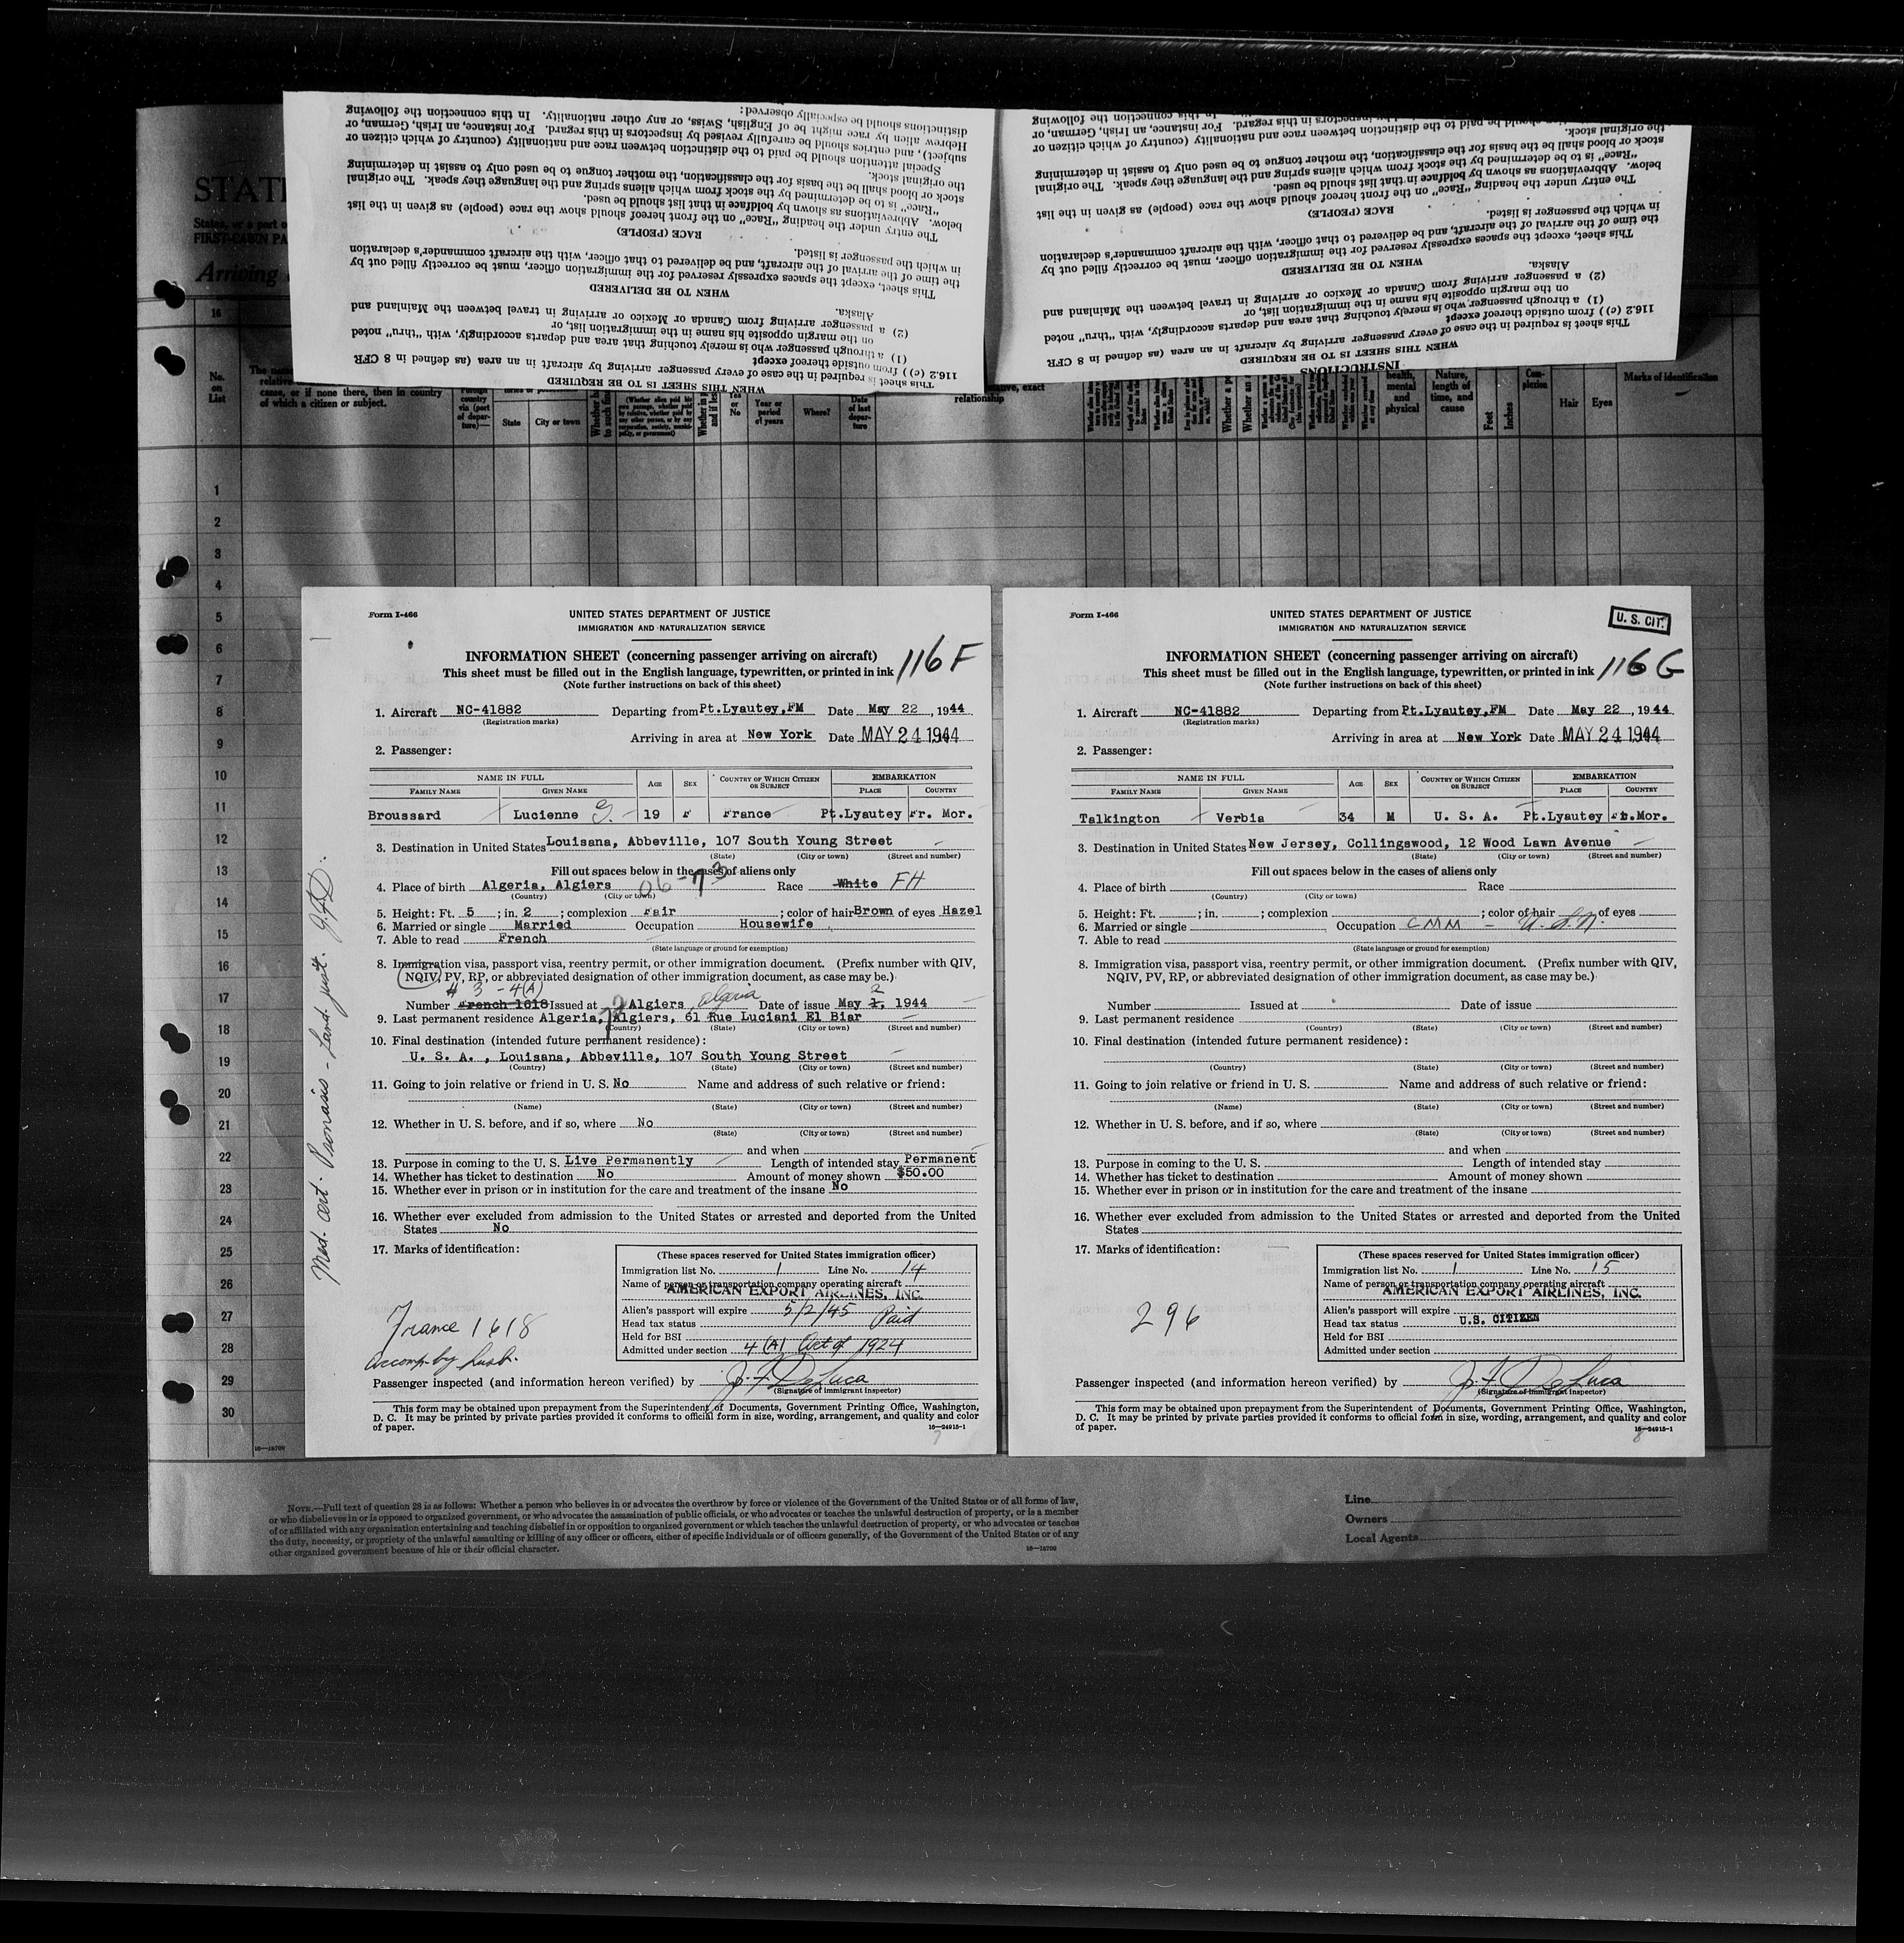 STATE
States, or a part o
FIRST-CABIN PA
Arriving
distinctions should be especially observed:
Hebrew alien by race might be of English, Swiss, or any other nationality. In this connection the following
subject), and entries should be carefully revised by inspectors in this regard. For instance, an Irish, German, or
Special attention should be paid to the distinction between race and nationality (country of which citizen or
the original stock.
stock or blood shall be the basis for the classification, the mother tongue to be used only to assist in determining
"Race" is to be determined by the stock from which aliens spring and the language they speak. The original
below. Abbreviations as shown by boldface in that list should be used.
The entry under the heading "Race" on the front hereof should show the race (people) as given in the list
RACE (PEOPLE)
in which the passenger is listed.
the time of the arrival of the aircraft, and be delivered to that officer, with the aircraft commander's declaration
This sheet, except the spaces expressly reserved for the immigration officer, must be correctly filled out by
WHEN TO BE DELIVERED
Alaska.
(2) a passenger arriving from Canada or Mexico or arriving in travel between the Mainland and
on the margin opposite his name in the immigration list, or
(1) a through passenger who is merely touching that area and departs accordingly, with "thru" noted
116.2 (c)) from outside thereof except
This sheet is required in the case of every passenger arriving by aircraft in an area (as defined in 8 CFR
WHEN THIS SHEET IS TO BE REQUIRED
subject), and entries should be carefully revised by inspectors in this regard. For instance, an Irish, German, or
should be paid to the distinction between race and nationality (country of which citizen or
the original stock.
stock or blood shall be the basis for the classification, the mother tongue to be used only to assist in determining
"Race" is to be determined by the stock from which aliens spring and the language they speak. The original
below. Abbreviations as shown by boldface in that list should be used.
The entry under the heading "Race" on the front hereof should show the race (people) as given in the list
RACE (PEOPLE)
in which the passenger is listed.
the time of the arrival of the aircraft, and be delivered to that officer, with the aircraft commander's declaration
This sheet, except the spaces expressly reserved for the immigration officer, must be correctly filled out by
WHEN TO BE DELIVERED
Alaska.
(2) a passenger arriving from Canada or Mexico or arriving in travel between the Mainland and
on the margin opposite his name in the immigration list, or
(1) a through passenger who is merely touching that area and departs accordingly, with "thru" noted
116.2 (c)) from outside thereof except
This sheet is required in the case of every passenger arriving by aircraft in an area (as defined in 8 CFR
WHEN THIS SHEET IS TO BE REQUIRED
INSTRUCTIONS
16
No. on List
case, or if none there, then in country
of which a citizen or subject.
country via (port of departure)—
State
City or town
Yes or No
Year or period of years
Where?
Date of last departure
relationship
health, mental and physical
Nature, length of time, and cause
Feet
Inches
Complexion
Hair
Eyes
Marks of identification
1
2
3
4
5
6
7
8
9
10
11
12
13
14
15
16
17
18
19
20
21
22
23
24
25
26
27
28
29
30
16—18709
Form I-466
UNITED STATES DEPARTMENT OF JUSTICE
IMMIGRATION AND NATURALIZATION SERVICE
INFORMATION SHEET (concerning passenger arriving on aircraft)
116 F
This sheet must be filled out in the English language, typewritten, or printed in ink
(Note further instructions on back of this sheet)
1. Aircraft NC-41882 Departing from Pt.Lyautey,FM Date May 22, 1944
(Registration marks)
Arriving in area at New York Date MAY 24 1944
2. Passenger:
NAME IN FULL AGE SEX COUNTRY OF WHICH CITIZEN OR SUBJECT EMBARKATION
FAMILY NAME GIVEN NAME PLACE COUNTRY
Broussard Lucienne G. 19 F France Pt.Lyautey Fr. Mor.
3. Destination in United States Louisana, Abbeville, 107 South Young Street
(State) (City or town) (Street and number)
Fill out spaces below in the cases of aliens only
4. Place of birth Algeria, Algiers 06-73 Race White FH
(Country) (City or town)
5. Height: Ft. 5; in. 2; complexion Fair; color of hair Brown of eyes Hazel
6. Married or single Married Occupation Housewife
7. Able to read French
(State language or ground for exemption)
8. Immigration visa, passport visa, reentry permit, or other immigration document. (Prefix number with QIV,
NQIV, PV, RP, or abbreviated designation of other immigration document, as case may be.)
# 3 - 4(A) 2
Number French 1618 Issued at Algiers Algeria Date of issue May 1, 1944
9. Last permanent residence Algeria, Algiers, 61 Rue Luciani El Biar
(Country) (State) (City or town) (Street and number)
10. Final destination (intended future permanent residence):
U. S. A., Louisana, Abbeville, 107 South Young Street
(Country) (State) (City or town) (Street and number)
11. Going to join relative or friend in U. S. No Name and address of such relative or friend:
(Name) (State) (City or town) (Street and number)
12. Whether in U. S. before, and if so, where No
(State) (City or town) (Street and number)
and when
13. Purpose in coming to the U. S. Live Permanently Length of intended stay Permanent
14. Whether has ticket to destination No Amount of money shown $50.00
15. Whether ever in prison or in institution for the care and treatment of the insane No
16. Whether ever excluded from admission to the United States or arrested and deported from the United
States No
17. Marks of identification:
(These spaces reserved for United States immigration officer)
Immigration list No. 1 Line No. 14
Name of person or transportation company operating aircraft
AMERICAN EXPORT AIRLINES, INC.
Alien's passport will expire 5/2/45
Head tax status Paid
Held for BSI
Admitted under section 4 (A) Act of 1924
France 1618
Accomp. by husb.
Passenger inspected (and information hereon verified) by J. F. DeLuca
(Signature of immigrant inspector)
This form may be obtained upon prepayment from the Superintendent of Documents, Government Printing Office, Washington,
D. C. It may be printed by private parties provided it conforms to official form in size, wording, arrangement, and quality and color
of paper.
16—24915-1
7
Med. cert.
Form I-466
UNITED STATES DEPARTMENT OF JUSTICE
IMMIGRATION AND NATURALIZATION SERVICE
U. S. CIT.
INFORMATION SHEET (concerning passenger arriving on aircraft)
116 G
This sheet must be filled out in the English language, typewritten, or printed in ink
(Note further instructions on back of this sheet)
1. Aircraft NC-41882 Departing from Pt.Lyautey,FM Date May 22, 1944
(Registration marks)
Arriving in area at New York Date MAY 24 1944
2. Passenger:
NAME IN FULL AGE SEX COUNTRY OF WHICH CITIZEN OR SUBJECT EMBARKATION
FAMILY NAME GIVEN NAME PLACE COUNTRY
Talkington Verbia 34 M U. S. A. Pt.Lyautey Fr.Mor.
3. Destination in United States New Jersey, Collingswood, 12 Wood Lawn Avenue
(State) (City or town) (Street and number)
Fill out spaces below in the cases of aliens only
4. Place of birth Race
(Country) (City or town)
5. Height: Ft. ; in. ; complexion ; color of hair of eyes
6. Married or single Occupation CMM - U.S.N.
7. Able to read
(State language or ground for exemption)
8. Immigration visa, passport visa, reentry permit, or other immigration document. (Prefix number with QIV,
NQIV, PV, RP, or abbreviated designation of other immigration document, as case may be.)
Number Issued at Date of issue
9. Last permanent residence
(Country) (State) (City or town) (Street and number)
10. Final destination (intended future permanent residence):
(Country) (State) (City or town) (Street and number)
11. Going to join relative or friend in U. S. Name and address of such relative or friend:
(Name) (State) (City or town) (Street and number)
12. Whether in U. S. before, and if so, where
(State) (City or town) (Street and number)
and when
13. Purpose in coming to the U. S. Length of intended stay
14. Whether has ticket to destination Amount of money shown
15. Whether ever in prison or in institution for the care and treatment of the insane
16. Whether ever excluded from admission to the United States or arrested and deported from the United
States
17. Marks of identification:
(These spaces reserved for United States immigration officer)
Immigration list No. 1 Line No. 15
Name of person or transportation company operating aircraft
AMERICAN EXPORT AIRLINES, INC.
Alien's passport will expire
Head tax status U.S. CITIZEN
Held for BSI
Admitted under section
296
Passenger inspected (and information hereon verified) by J. F. DeLuca
(Signature of immigrant inspector)
This form may be obtained upon prepayment from the Superintendent of Documents, Government Printing Office, Washington,
D. C. It may be printed by private parties provided it conforms to official form in size, wording, arrangement, and quality and color
of paper.
16—24915-1
8
NOTE.—Full text of question 28 is as follows: Whether a person who believes in or advocates the overthrow by force or violence of the Government of the United States or of all forms of law,
or who disbelieves in or is opposed to organized government, or who advocates the assassination of public officials, or who advocates or teaches the unlawful destruction of property, or is a member
of or affiliated with any organization entertaining and teaching disbelief in or opposition to organized government or which teaches the unlawful destruction of property, or who advocates or teaches
the duty, necessity, or propriety of the unlawful assaulting or killing of any officer or officers, either of specific individuals or of officers generally, of the Government of the United States or of any
other organized government because of his or their official character.
16—18709
Line
Owners
Local Agents